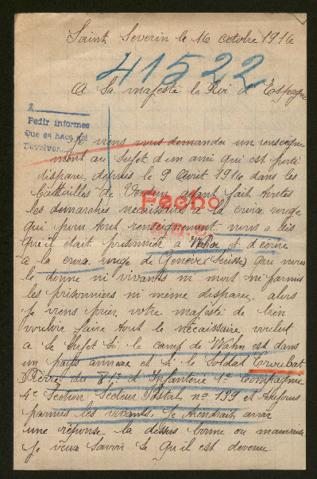 Saint Severin le 16 octobre 1916
41522
A Sa majesté le Roi de Espagne
Pedir informes
que se hace del
Devolver
Je viens vous demander un renseigne
ment au Sujet d'un ami qui est porté
disparu depuis le 9 Avril 1916 dans les
Battailles de Verdun ayant fait toutes
les demarches nécaisaire à la croix rouge
qui pour tout renseignement nous a dit
qu'il était prisonnié a Wahn et d'écrire
a la croix rouge de Genève (Suisse) qui nous
le donne ni vivants ni mort ni parmis
les prisonniers ni meme disparu, alors
Je viens prier votre majesté de bien
vouloir faire tout le nécaissaire voulut
a ce Sujet Si le camp de Wahn est dans
un pays annexe et si le Soldat Courbat
Pierre du 81e d'Infanterie 1e Compagnie
4e Section Secteur Postal no 139 est toujours
parmis les vivants. Je tiendrait avoir
une réponse la dessus bonne ou mauvaise
Je veux Savoir Se Qu'il est devenu
Fecho